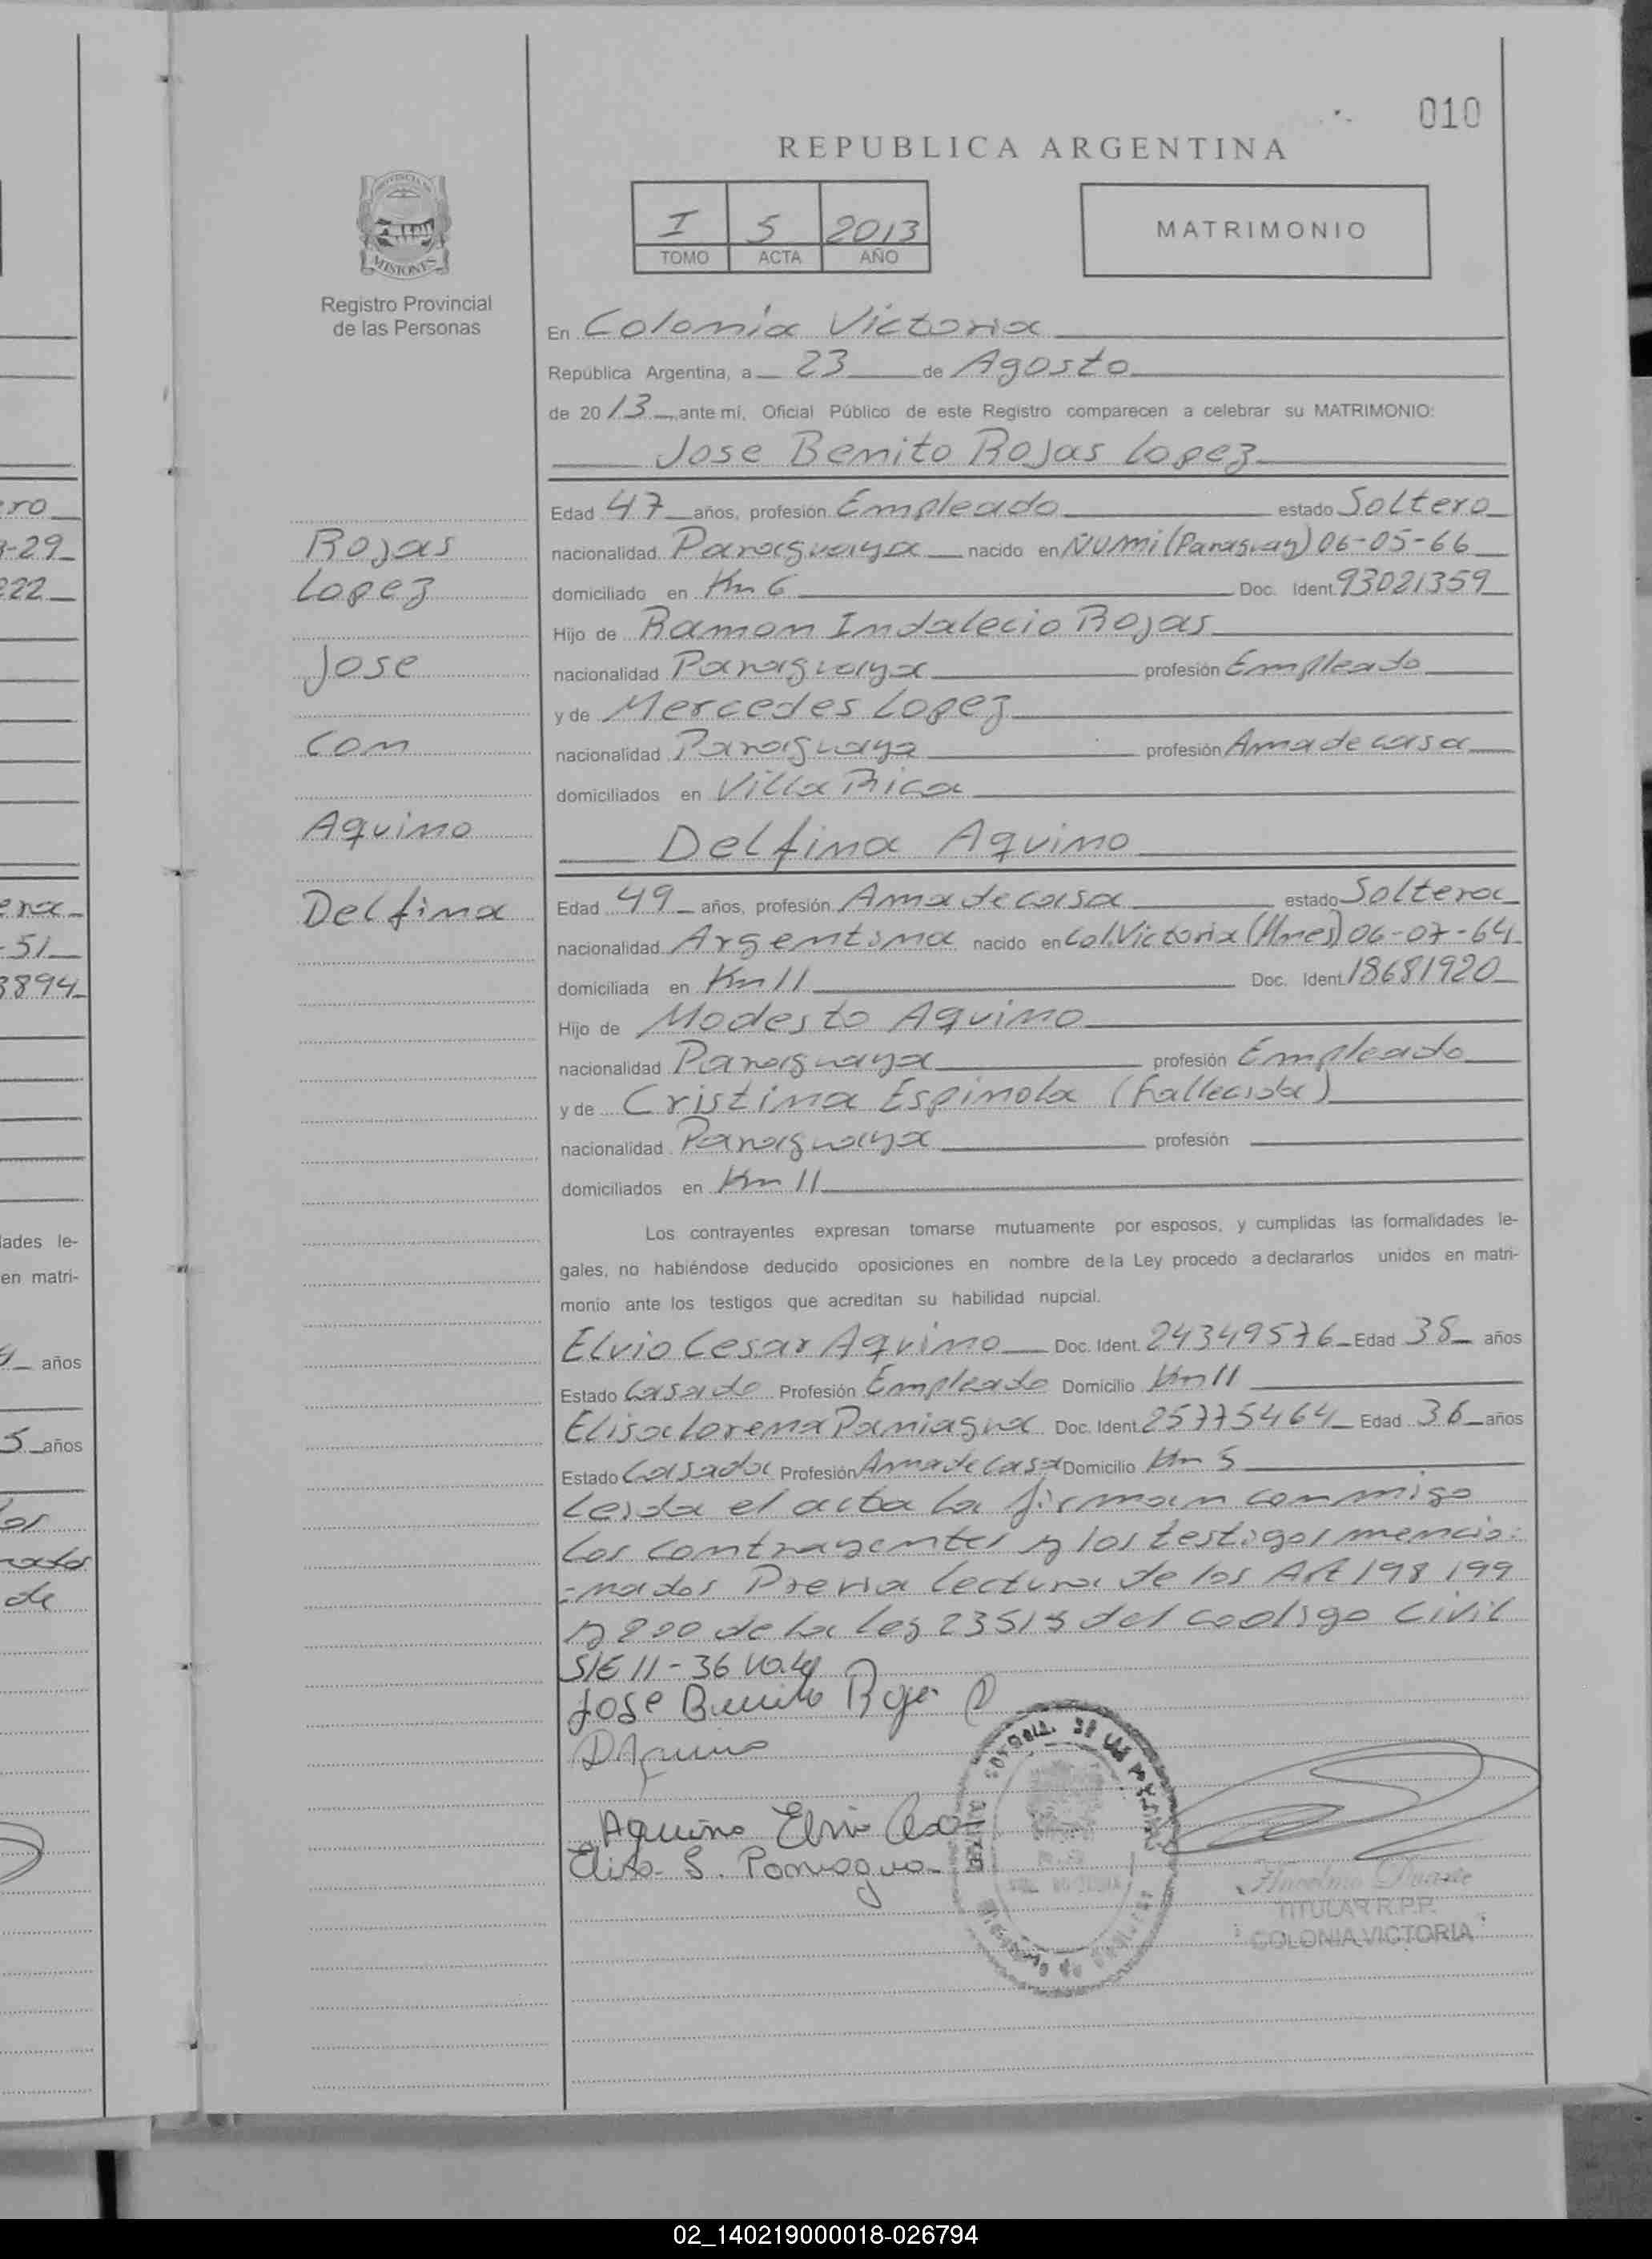 010
REPUBLICA ARGENTINA
I 5 2013
TOMO ACTA AÑO
MATRIMONIO
MISIONES
Registro Provincial
de las Personas
En Colonia Victoria
República Argentina, a 23 de Agosto
de 2013 ante mí, Oficial Público de este Registro comparecen a celebrar su MATRIMONIO:
Jose Benito Rojas Lopez
Edad 47 años, profesión Empleado estado Soltero
nacionalidad Paraguaya nacido en Ñumi (Paraguay) 06-05-66
domiciliado en Km 6 Doc. Ident. 93021359
Hijo de Ramon Indalecio Rojas
nacionalidad Paraguaya profesión Empleado
y de Mercedes Lopez
nacionalidad Paraguaya profesión Ama de casa
domiciliados en Villa Rica
Rojas
Lopez
Jose
con
Aquino
Delfina
Delfina Aquino
Edad 49 años, profesión Ama de casa estado Soltera
nacionalidad Argentina nacido en Col. Victoria (Mnes) 06-07-64
domiciliada en Km 11 Doc. Ident. 18681920
Hijo de Modesto Aquino
nacionalidad Paraguaya profesión Empleado
y de Cristina Espinola (fallecida)
nacionalidad Paraguaya profesión
domiciliados en Km 11
Los contrayentes expresan tomarse mutuamente por esposos, y cumplidas las formalidades le-
gales, no habiéndose deducido oposiciones en nombre de la Ley procedo a declararlos unidos en matri-
monio ante los testigos que acreditan su habilidad nupcial.
Elvio Cesar Aquino Doc. Ident. 24349576 Edad 38 años
Estado Casado Profesión Empleado Domicilio Km 11
Elisa Lorena Paniagua Doc. Ident. 25775464 Edad 36 años
Estado Casada Profesión Ama de Casa Domicilio Km 5
Leida el acta la firman conmigo
los contrayentes y los testigos mencio-
-nados Previa lectura de los Art 198 199
y 200 de la ley 23515 del codigo Civil
S/E 11 - 36 vale
Jose Benito Roja
D Aquino
Aquino Elvio Cesar
Elisa L. Paniagua
Anselmo Duarte
TITULAR R.P.P.
COLONIA VICTORIA
ero
-29
222
era
-51
3894
lades le-
en matri-
años
5 años
de
02_140219000018-026794